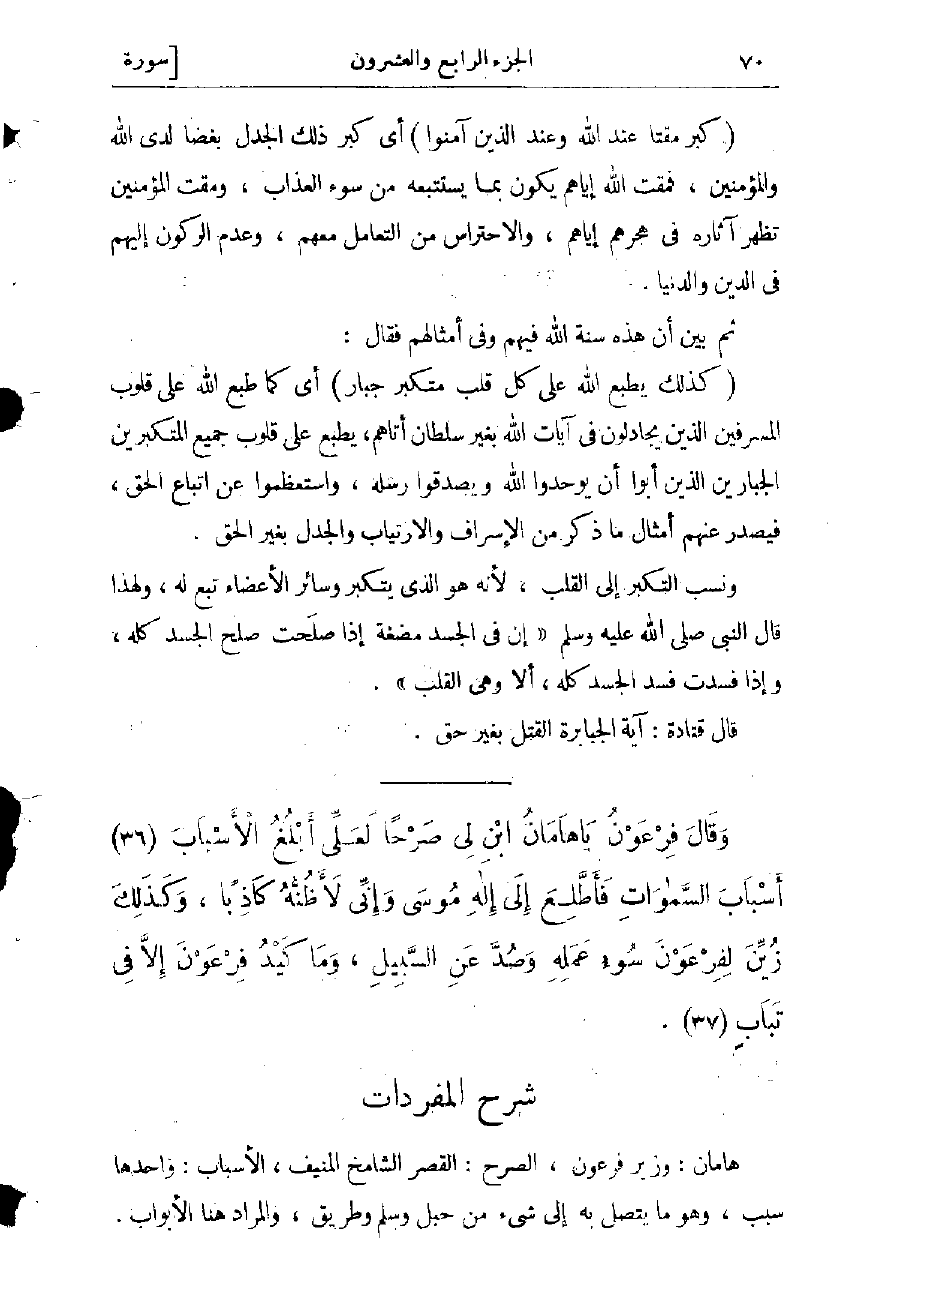 ٧٠ الجزء الرابع والعشرون [سورة
( كبر مقتا عند الله وعند الذين آمنوا ) أى كبر ذلك الجدل بغضا لدى الله
والمؤمنين ، فمقت الله إياهم يكون بما يستتبعه من سوء العذاب ، ومقت المؤمنين
تظهر آثاره فى هجرهم إياهم ، والاحتراس من التعامل معهم ، وعدم الركون إليهم
فى الدين والدنيا .
ثم بين أن هذه سنة الله فيهم وفى أمثالهم فقال :
( كذلك يطبع الله على كل قلب متكبر جبار ) أى كما طبع الله على قلوب
المسرفين الذين يجادلون فى آيات الله بغير سلطان أتاهم، يطبع على قلوب جميع المتكبرين
الجبارين الذين أبوا أن يوحدوا الله ويصدقوا رسله ، واستعظموا عن اتباع الحق ،
فيصدر عنهم أمثال ما ذكر من الإسراف والارتياب والجدل بغير الحق .
ونسب التكبر إلى القلب ، لأنه هو الذى يتكبر وسائر الأعضاء تبع له ، ولهذا
قال النبى صلى الله عليه وسلم « إن فى الجسد مضغة إذا صلَحت صلح الجسد كله ،
وإذا فسدت فسد الجسد كله ، ألا وهى القلب » .
قال قتادة : آية الجبابرة القتل بغير حق .
وَقَالَ فِرْعَوْنُ يَاهَامَانُ ابْنِ لِى صَرْحًا لَعَلِّى أَبْلُغُ الْأَسْبَابَ (٣٦)
أَسْبَابَ السَّمٰوَاتِ فَأَطَّلِعَ إِلَى إِلٰهِ مُوسَى وَإِنِّى لَأَظُنُّهُ كَاذِبًا ، وَكَذٰلِكَ
زُيِّنَ لِفِرْعَوْنَ سُوءُ عَمَلِهِ وَصُدَّ عَنِ السَّبِيلِ ، وَمَا كَيْدُ فِرْعَوْنَ إِلاَّ فِى
تَبَابٍ (٣٧) .
شرح المفردات
هامان : وزير فرعون ، الصرح : القصر الشامخ المنيف ، الأسباب : واحدها
سبب ، وهو ما يتصل به إلى شىء من حبل وسلم وطريق ، والمراد هنا الأبواب .